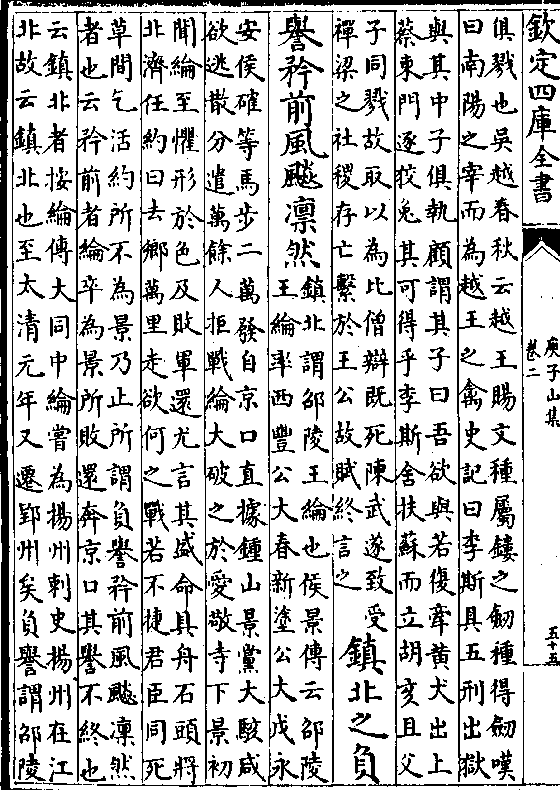 欽定四庫全書
庾子山集
卷二
五十五
俱戮也吳越春秋云越王賜文種屬鏤之劒種得劒嘆
曰南陽之宰而為越王之禽史記曰李斯具五刑出獄
與其中子俱執顧謂其子曰吾欲與若復牽黃犬出上
蔡東門逐狡兔其可得乎李斯舍扶蘇而立胡亥且父
子同戮故取以為比僧辯既死陳武遂致受
禪梁之社稷存亡繫於王公故賦終言之
鎮北之負
譽矜前風飈凛然
鎮北謂邵陵王綸也侯景傳云邵陵
王綸率西豐公大春新塗公大成永
安侯確等馬步二萬發自京口直據鍾山景黨大駭咸
欲逃散分遣萬餘人拒戰綸大破之於愛敬寺下景初
聞綸至懼形於色及敗軍還尤言其盛命具舟石頭將
北濟任約曰去鄉萬里走欲何之戰若不捷君臣同死
草間乞活約所不為景乃止所謂負譽矜前風飈凛然
者也云矜前者綸卒為景所敗還奔京口其譽不終也
云鎮北者按綸傳大同中綸嘗為揚州刺史揚州在江
北故云鎮北也至太清元年又遷郢州矣負譽謂邵陵